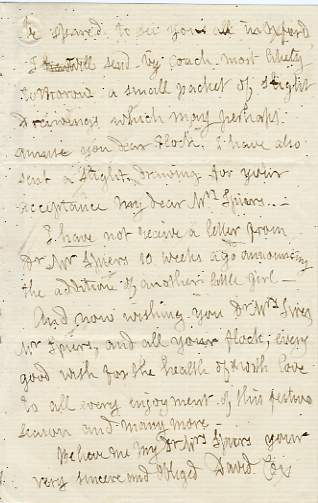 be spared to see you all in Oxford
I will send by coach most likely
tomorrow a small packet of slight
drawings which may perhaps
amuse you dear flock. I have also
sent a slight drawing for your
acceptance my dear Mrs Spiers. . —
I have not receive a letter from
Dr Mr Spiers 10 weeks ago announcing
the addition of another little girl —
And now wishing you Dr Mrs Spiers
Mr Spiers, and all your flock, every
good wish for the health of with love
to all every enjoyment of this festive
season and many more —
Believe me My Dr Mrs Spiers your
very sincere and obliged David Cox